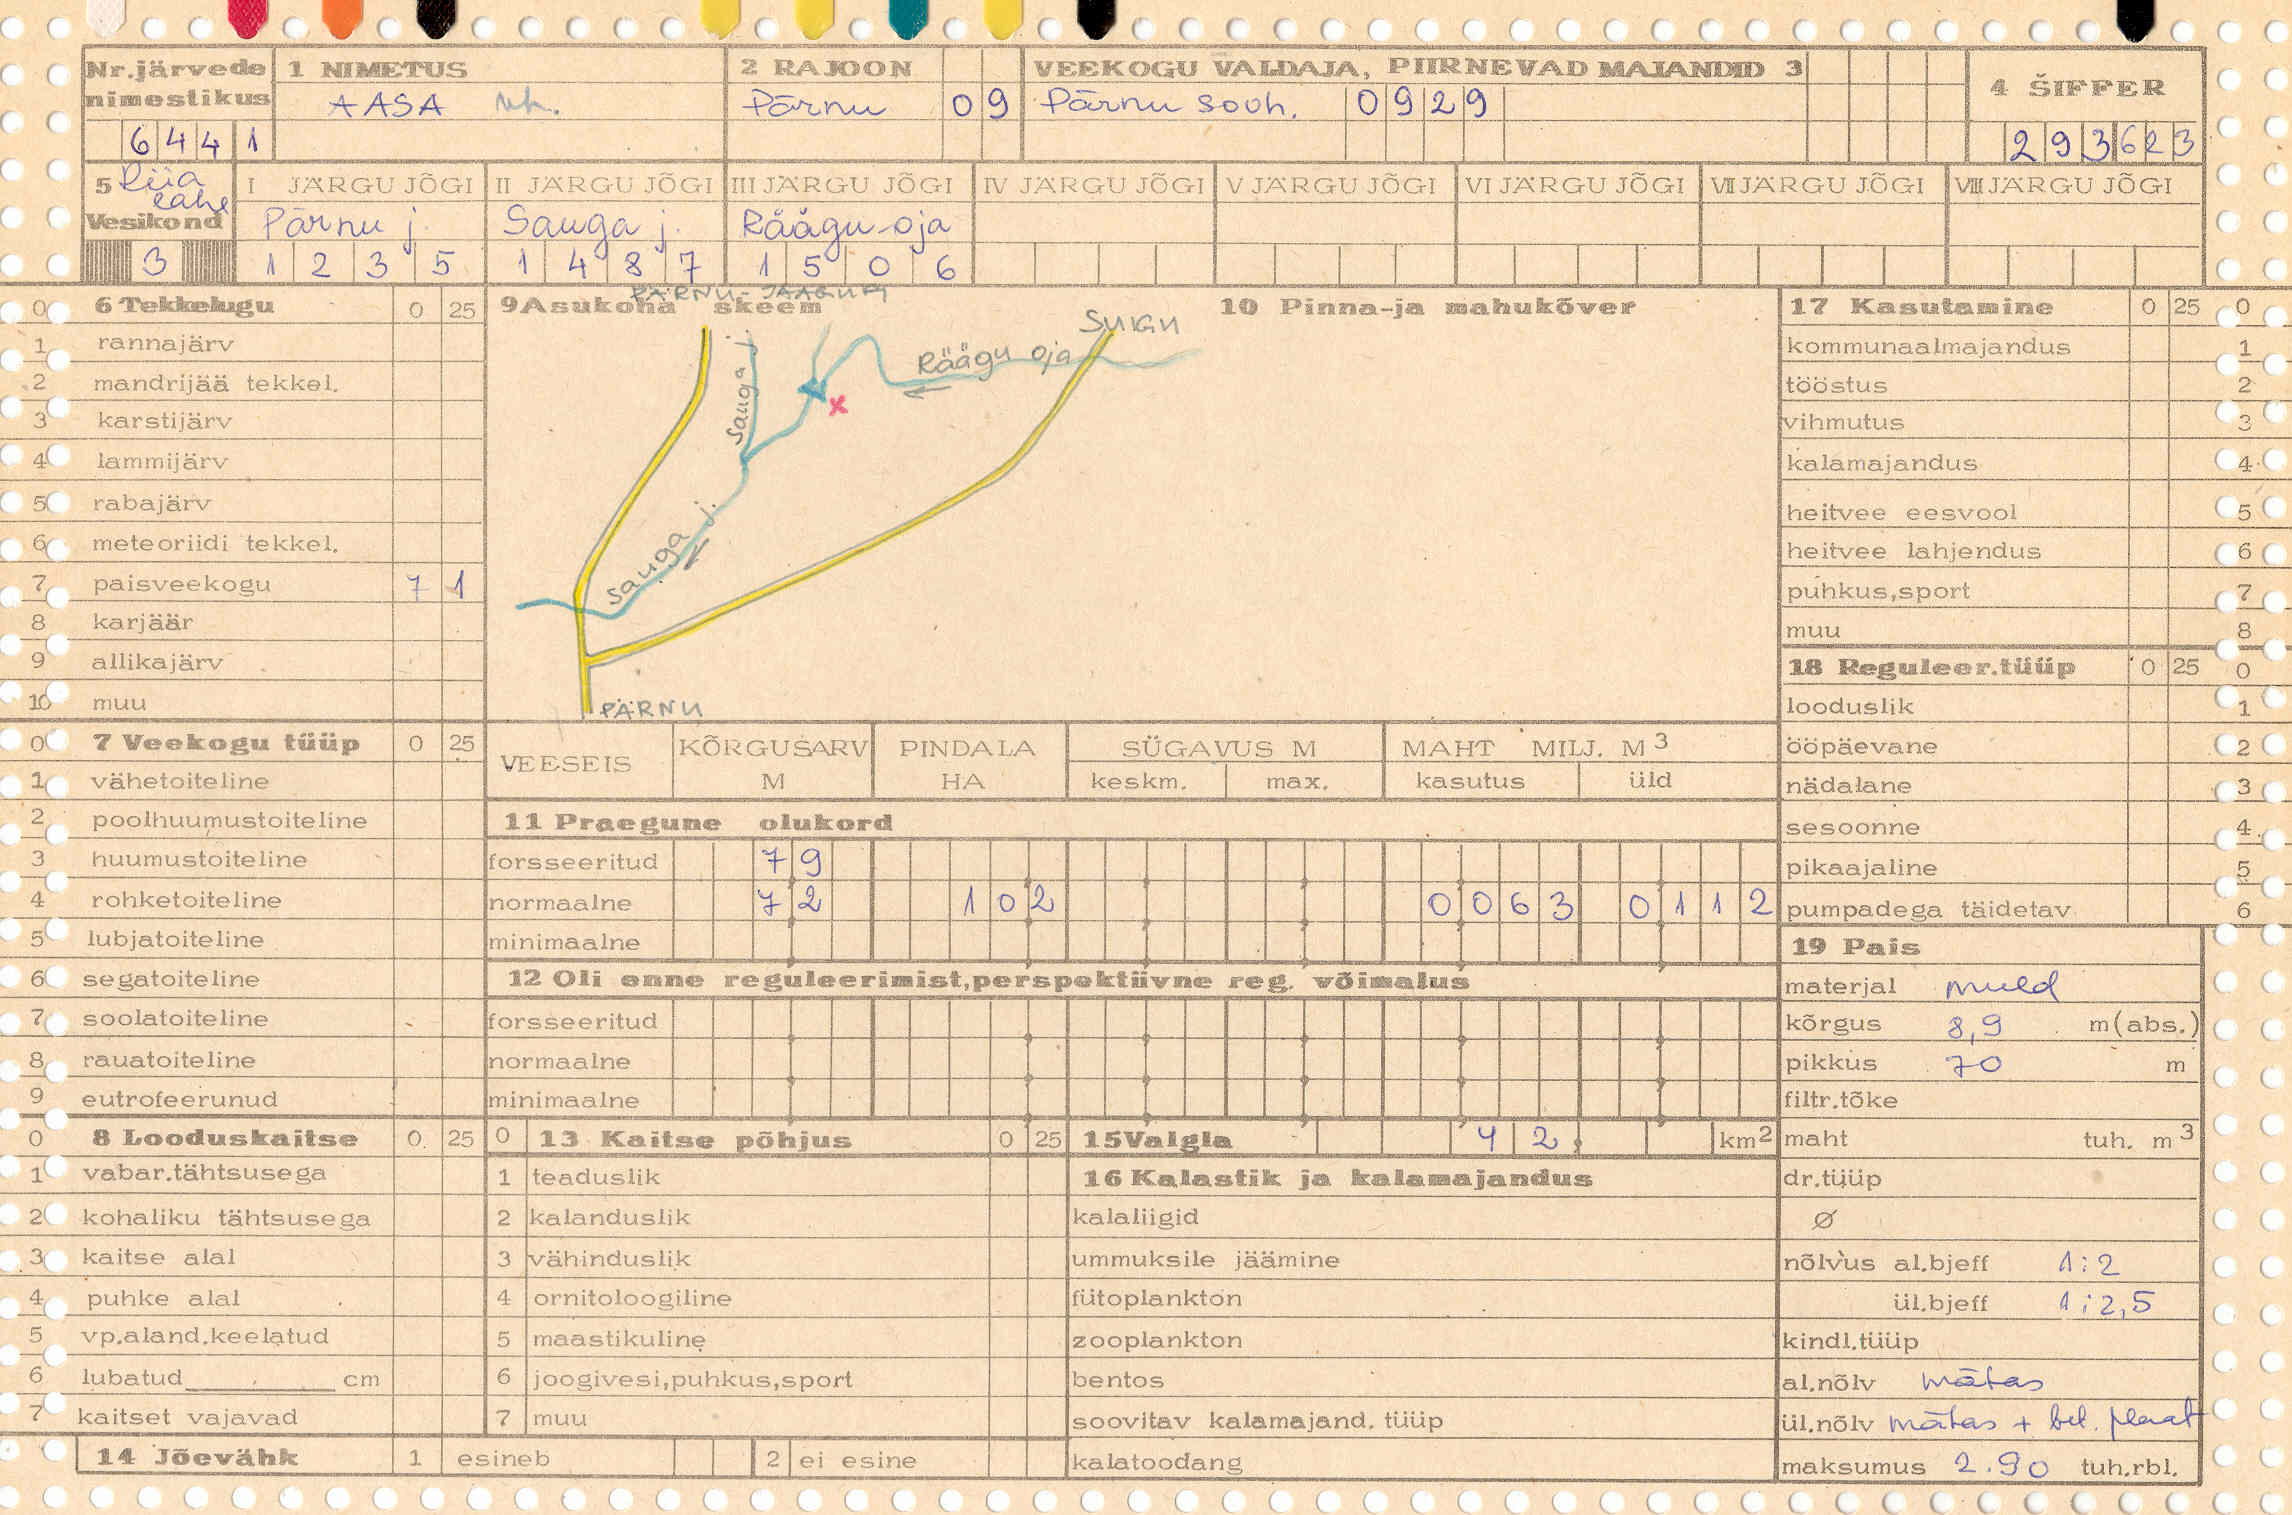 Nr.järvede nimestikus
6 4 4 1
1 NIMETUS
AASA vh.
2 RAJOON
Pärnu 0 9
VEEKOGU VALDAJA, PIIRNEVAD MAJANDID 3
Pärnu sovh. 0 9 2 9
4 ŠIFFER
2 9 3 6 2 3
5 Riia lahe
Vesikond
3
I JÄRGU JÕGI
Pärnu j.
1 2 3 5
II JÄRGU JÕGI
Sauga j.
1 4 8 7
III JÄRGU JÕGI
Räägu-oja
1 5 0 6
IV JÄRGU JÕGI
V JÄRGU JÕGI
VI JÄRGU JÕGI
VII JÄRGU JÕGI
VIII JÄRGU JÕGI
0 6 Tekkelugu 0 25
1 rannajärv
2 mandrijää tekkel.
3 karstijärv
4 lammijärv
5 rabajärv
6 meteoriidi tekkel.
7 paisveekogu 7 1
8 karjäär
9 allikajärv
10 muu
9 Asukoha skeem
PÄRNU-JAAGUPI
10 Pinna-ja mahukõver
SUIGU
Räägu oja
Sauga j.
x
Sauga j.
PÄRNU
17 Kasutamine 0 25 0
kommunaalmajandus 1
tööstus 2
vihmutus 3
kalamajandus 4
heitvee eesvool 5
heitvee lahjendus 6
puhkus,sport 7
muu 8
18 Reguleer.tüüp 0 25 0
looduslik 1
ööpäevane 2
nädalane 3
sesoonne 4
pikaajaline 5
pumpadega täidetav 6
0 7 Veekogu tüüp 0 25
1 vähetoiteline
2 poolhuumustoiteline
3 huumustoiteline
4 rohketoiteline
5 lubjatoiteline
6 segatoiteline
7 soolatoiteline
8 rauatoiteline
9 eutrofeerunud
VEESEIS
KÕRGUSARV M
PINDALA HA
SÜGAVUS M
keskm. max.
MAHT MILJ. M3
kasutus üld
11 Praegune olukord
forsseeritud 7 9
normaalne 7 2 1 0 2 0 0 6 3 0 1 1 2
minimaalne
12 Oli enne reguleerimist,perspektiivne reg. võimalus
forsseeritud
normaalne
minimaalne
19 Pais
materjal muld
kõrgus 8,9 m(abs.)
pikkus 70 m
filtr.tõke
maht tuh. m3
dr.tüüp
ø
nõlvus al.bjeff 1:2
ül.bjeff 1:2,5
kindl.tüüp
al.nõlv mätas
ül.nõlv mätas + bet. plaat
maksumus 2.90 tuh.rbl.
0 8 Looduskaitse 0 25
1 vabar.tähtsusega
2 kohaliku tähtsusega
3 kaitse alal
4 puhke alal
5 vp.aland.keelatud
6 lubatud cm
7 kaitset vajavad
0 13 Kaitse põhjus 0 25
1 teaduslik
2 kalanduslik
3 vähinduslik
4 ornitoloogiline
5 maastikuline
6 joogivesi,puhkus,sport
7 muu
15 Valgla 4 2 , km2
16 Kalastik ja kalamajandus
kalaliigid
ummuksile jäämine
fütoplankton
zooplankton
bentos
soovitav kalamajand. tüüp
kalatoodang
14 Jõevähk 1 esineb 2 ei esine